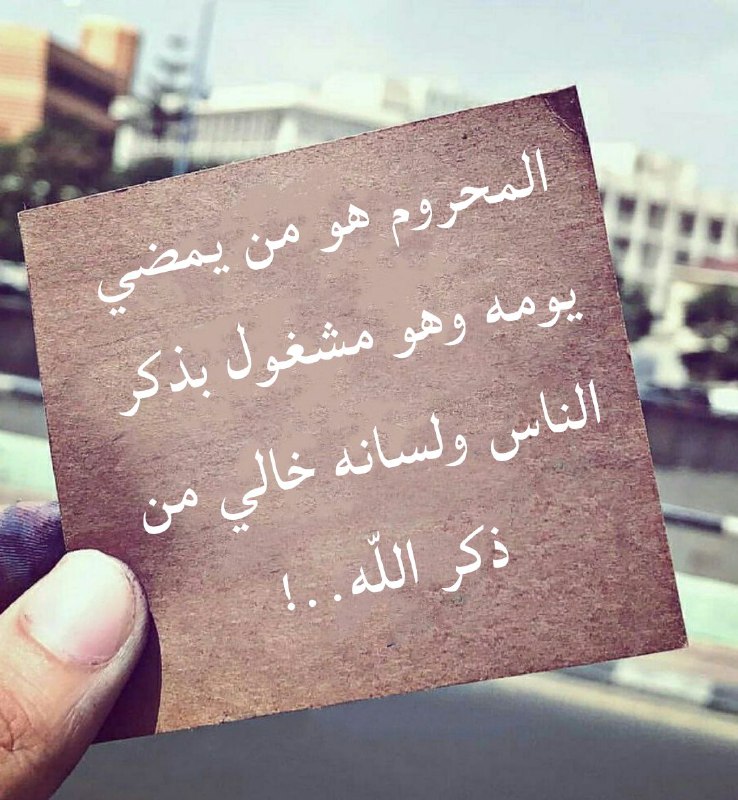 المحروم هو من يمضي
يومه وهو مشغول بذكر
الناس ولسانه خالي من
ذكر اللّه..!